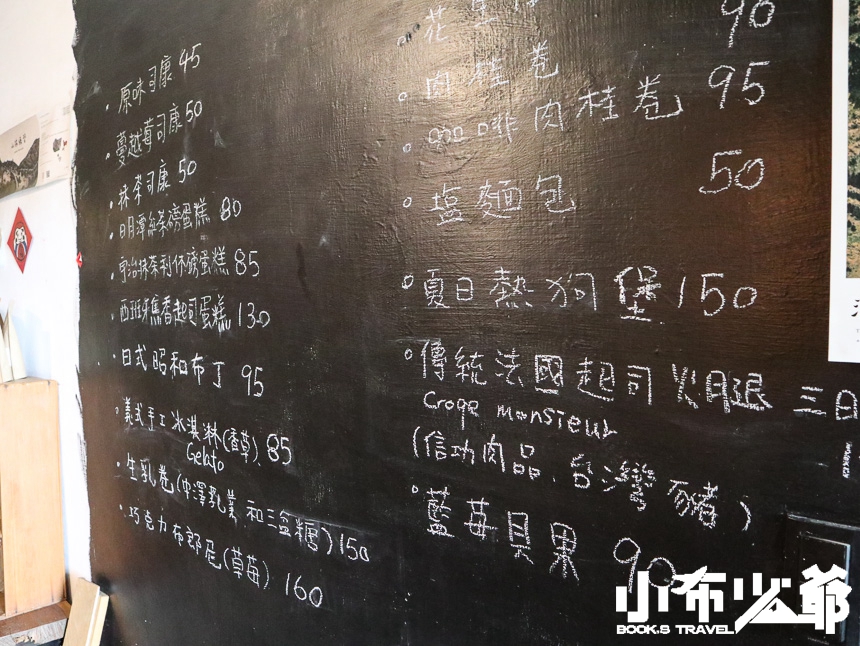 原味司康 45
蔓越莓司康 50
抹茶司康 50
日月潭紅茶磅蛋糕 80
宇治抹茶利休磅蛋糕 85
西班牙焦香起司蛋糕 130
日式昭和布丁 95
義式手工冰淇淋(香草) 85
Gelato
生乳卷(中澤乳業 和三盆糖) 150
巧克力布郎尼(草莓) 160
花生 90
肉桂卷
咖啡肉桂卷 95
塩麵包 50
夏日熱狗堡 150
傳統法國起司火腿 三日
Croqe monsieur
(信功肉品、台灣豬)
藍莓貝果 90
小布少爺
BOOK.S TRAVEL